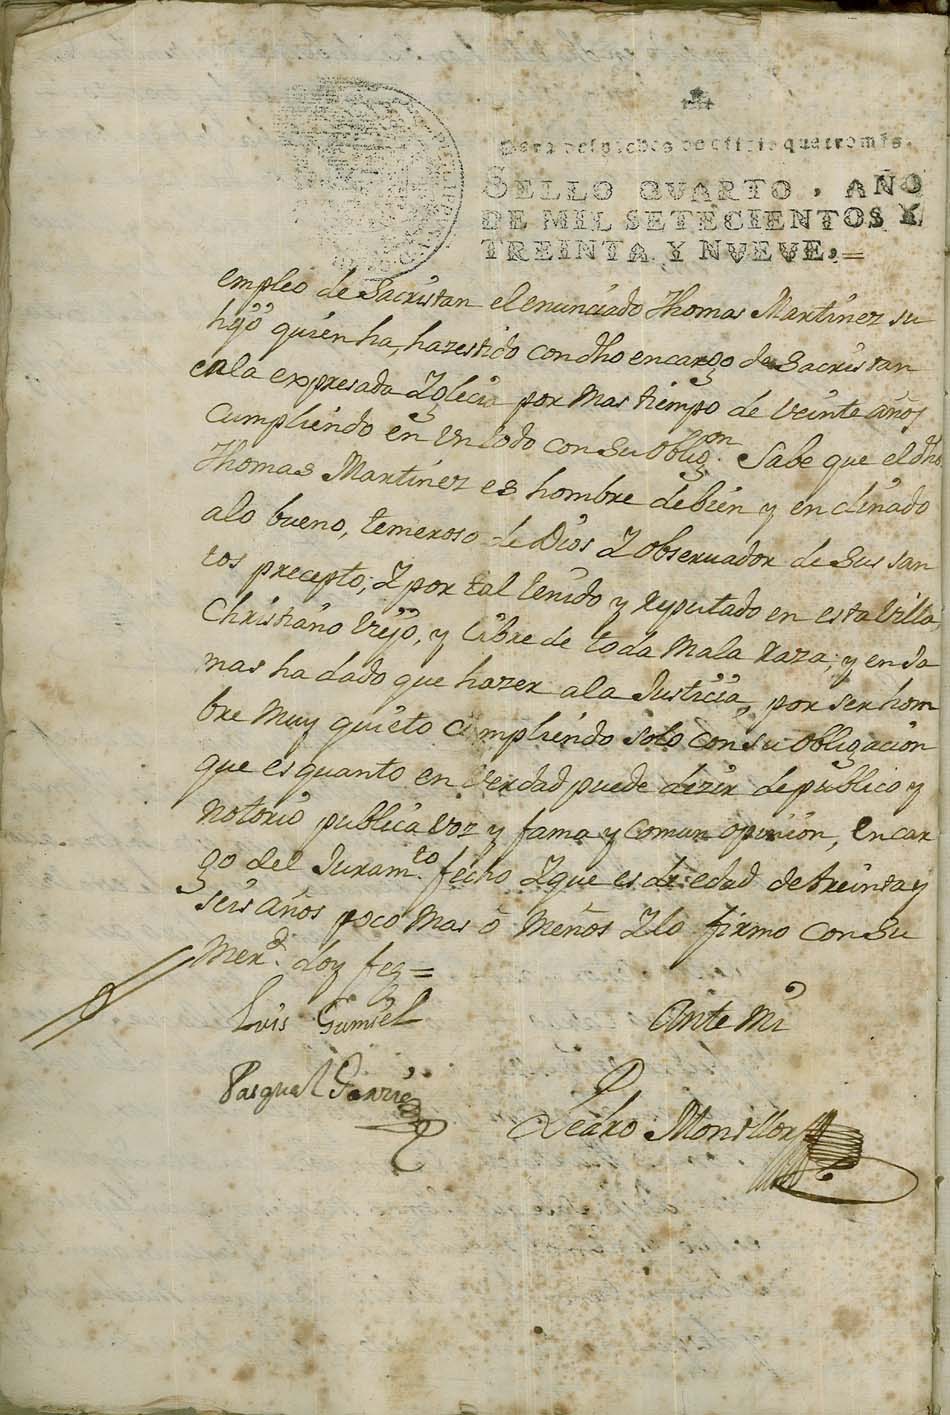 Para despachos de officio quatro mrs.
SELLO QVARTO, AÑO
DE MIL SETECIENTOS Y
TREINTA Y NVEVE,=
empleo de Sacristan el enunciado Thomas Martinez su
hijo quien ha, hazestido con dho encargo de Sacristan
en la expresada Iglecia por Mas tiempo de veinte años
Cumpliendo en Un todo con su oblig.on Sabe que el dho
Thomas Martinez es hombre de bien y enclinado
alo bueno, temeroso de Dios Y observador de sus san
tos precepto; Y por tal tenido y Reputado en esta Villa,
Christiano Viejo, y Libre de toda Mala Raza; y en Ja
mas ha dado que hazer ala Justicia, por ser hom
bre Muy quieto Cumpliendo solo con su obligacion
que es quanto en Verdad puede dezir de publico y
Notorio publica Voz y fama y comun opinion, en car
go del Juram.to fecho Y que es de edad de treinta y
seis años poco Mas ô Menos Y lo firmo con Su
Mer.d doy fee=
Luis Gumiel
Ante Mi
Pasqual
Pedro Monsllor